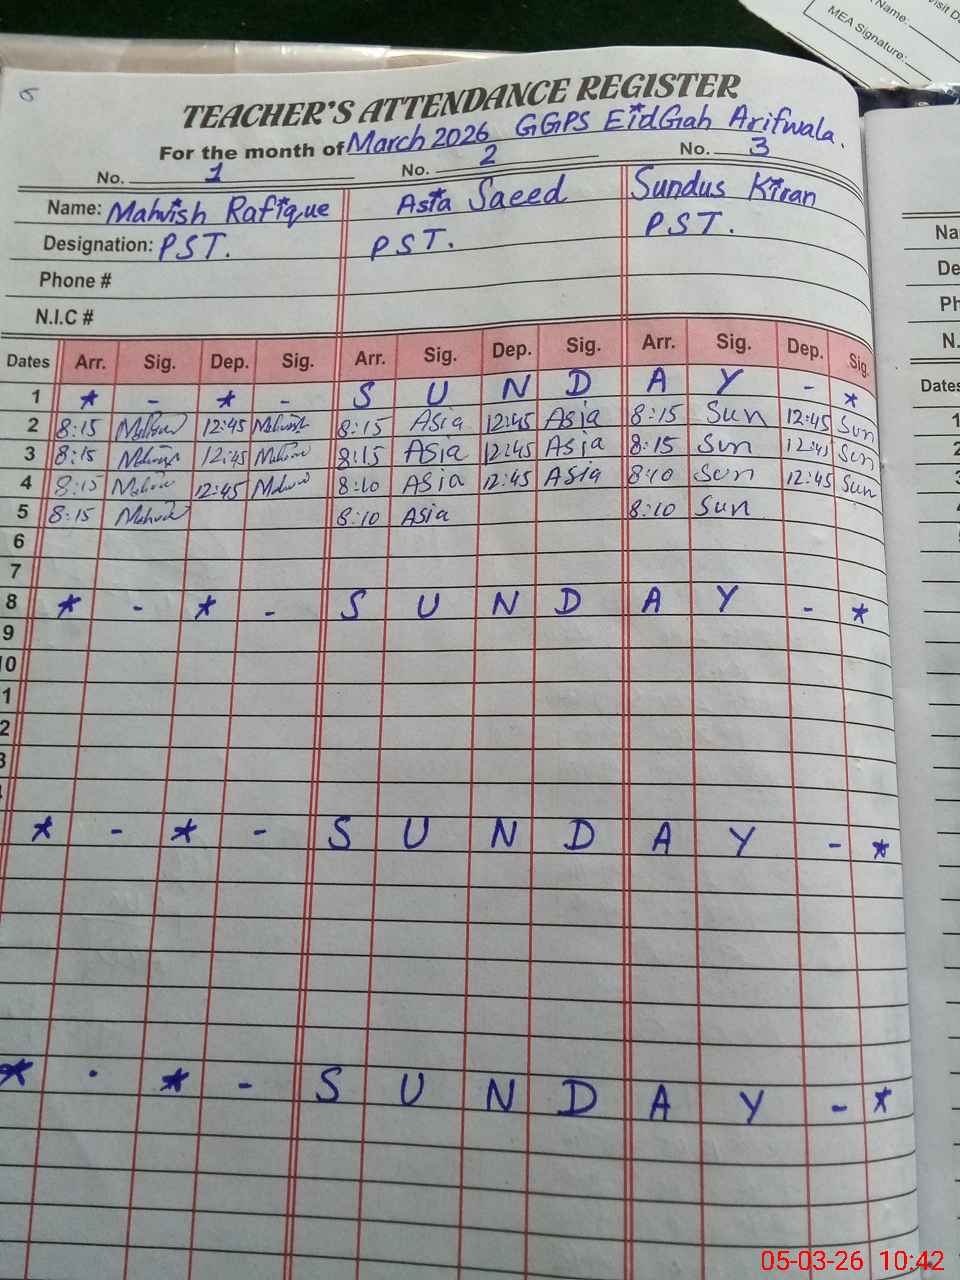 Name:
Visit Da
MEA Signature:
5
TEACHER'S ATTENDANCE REGISTER
For the month of March 2026 GGPS EidGah Arifwala.
No. 1 No. 2 No. 3
Name: Mahvish Rafique Asia Saeed Sundus Kiran
Designation: PST. PST. PST.
Phone #
N.I.C #
Dates Arr. Sig. Dep. Sig. Arr. Sig. Dep. Sig. Arr. Sig. Dep. Sig.
1 * - * - S U N D A Y - *
2 8:15 12:45 8:15 Asia 12:45 Asia 8:15 Sun 12:45 Sun
3 8:15 12:45 8:15 Asia 12:45 Asia 8:15 Sun 12:45 Sun
4 8:15 12:45 8:10 Asia 12:45 Asia 8:10 Sun 12:45 Sun
5 8:15 8:10 Asia 8:10 Sun
6
7
8 * - * - S U N D A Y - *
9
10
1
2
3
* - * - S U N D A Y - *
* - * - S U N D A Y - *
Na
De
Ph
N.
Dates
1
2
3
05-03-26 10:42